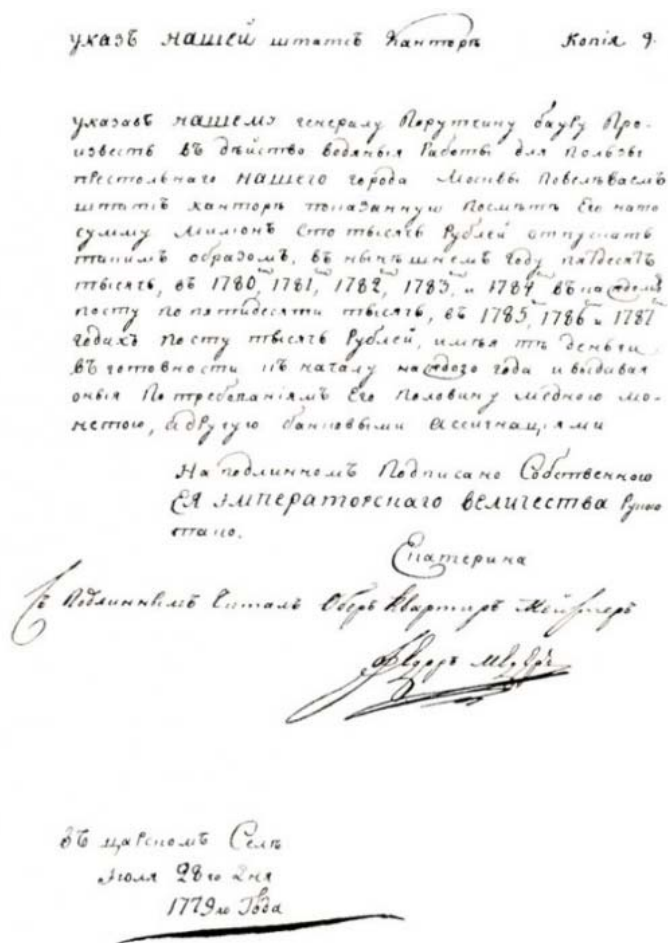 указъ НАШЕЙ штатсъ Канторѣ Копія 9.
указавъ НАШЕМУ генералу Порутчику бауру Про-
известь въ дѣйство водяныя Работы для пользы
престольнаго НАШЕГО города Москвы Повелѣваемъ
штатсъ канторѣ показанную Посмѣтѣ Его нато
сумму Милионъ сто тысячь Рублей отпускать
такимъ образомъ, въ нынѣшнемъ году пятдесятъ
тысячь, въ 1780, 1781, 1782, 1783, и 1784 въкаждомъ
посту попятидесяти тысячь, въ 1785, 1786 и 1787
годахъ посту тысячь Рублей, имѣя тѣ деньги
въ готовности къ началу каждого года и выдавая
оныя По требованіямъ Его Половину мѣдною мо-
нетою, адругую банковыми ассигнаціями
На подлинномъ Подписано Собственною
ЕЯ ИМПЕРАТОРСКАГО ВЕЛИЧЕСТВА Рукою
тако.
Екатерина
Съ Подлиннымъ Читалъ Оберъ Квартиръ Мейстеръ
Въ царскомъ Селѣ
Июля 28го Дня
1779го Года